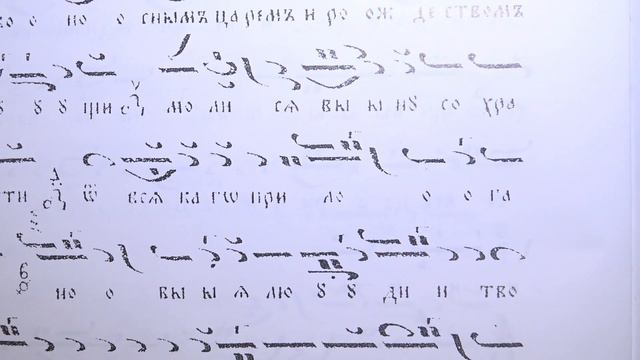 о о но о снымъ царемъ и ро ож де ствомъ
ꙋ ꙋ ꙋ щи мо ли сѧ вы ы нꙋ со хра
ти ѿ всѧ ка гѡ при ло о о га
но о вы ы ѧ лю ꙋ ꙋ ди и тво